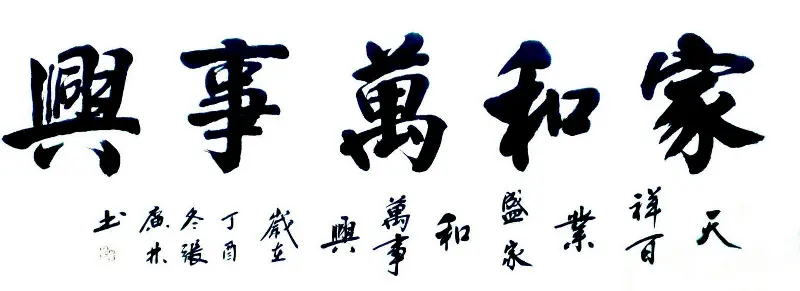 家和萬事興
天祥百業盛家和萬事興歲在丁酉冬張廣林书